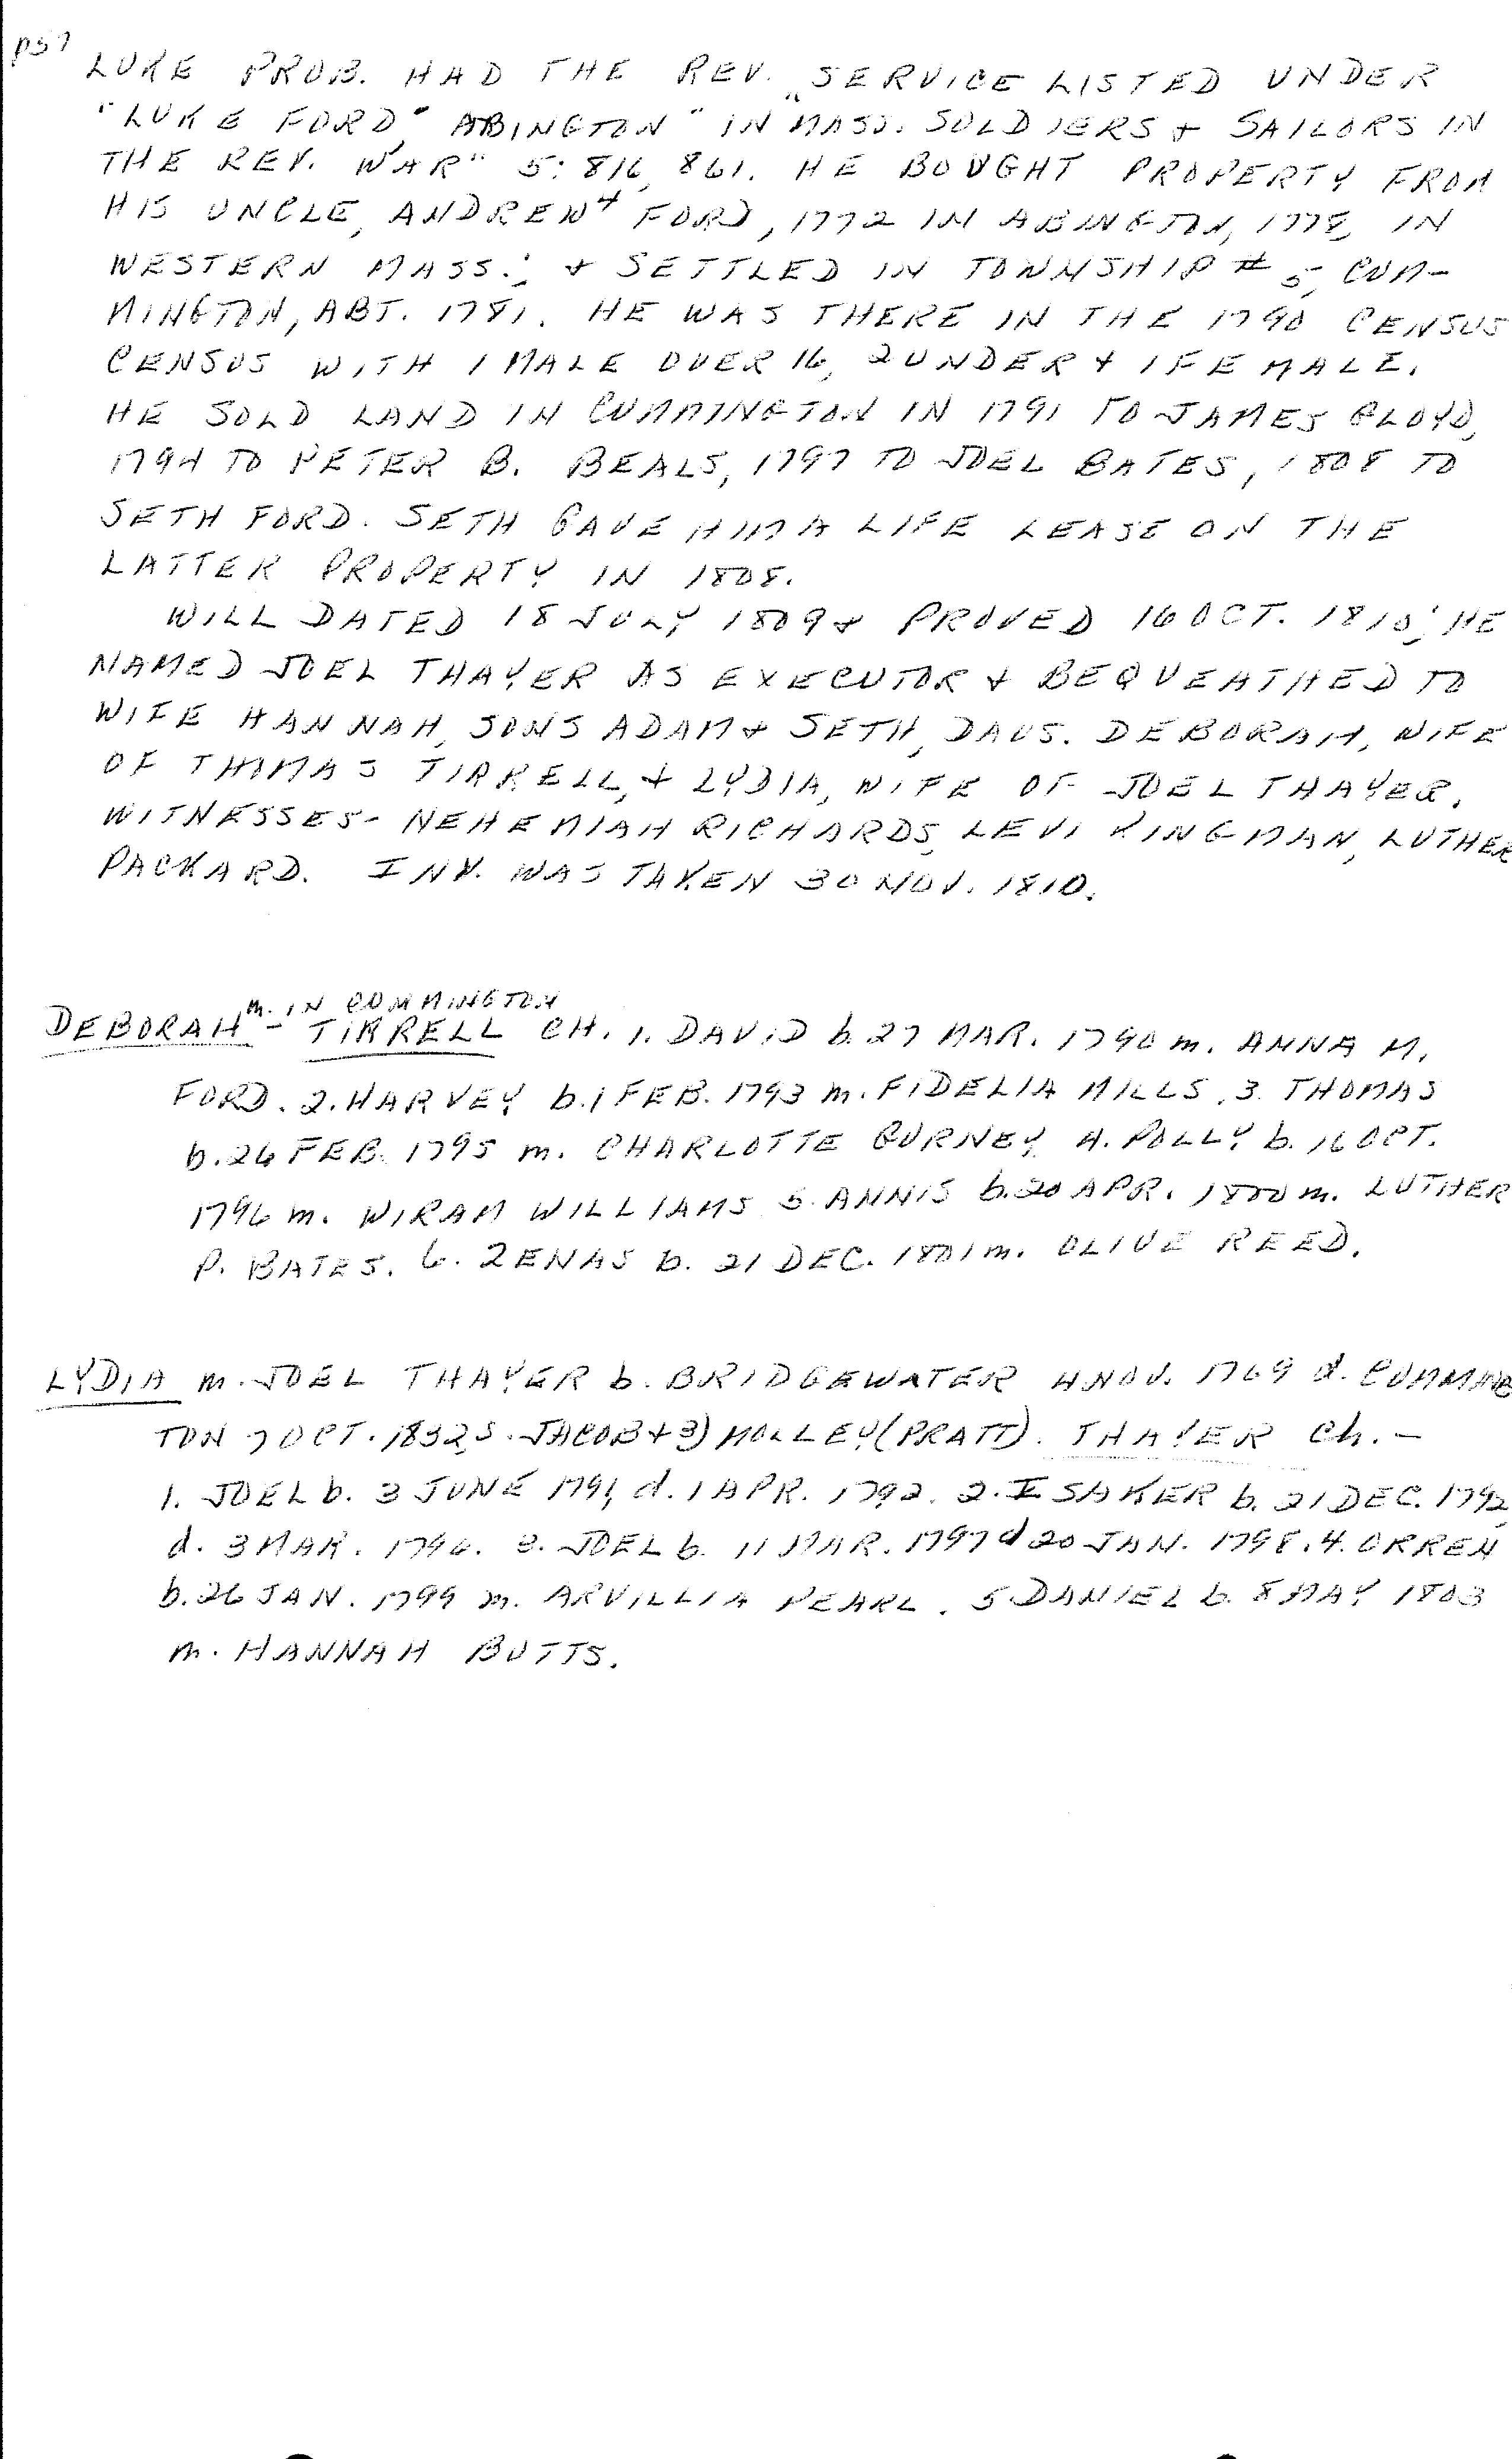 p57
LUKE PROB. HAD THE REV. SERVICE LISTED UNDER
"LUKE FORD, ABINGTON" IN "MASS. SOLDIERS & SAILORS IN
THE REV. WAR" 5: 816, 861. HE BOUGHT PROPERTY FROM
HIS UNCLE, ANDREW⁴ FORD, 1772 IN ABINGTON, 1778, IN
WESTERN MASS.; & SETTLED IN TOWNSHIP # 5, CUM-
MINGTON, ABT. 1781. HE WAS THERE IN THE 1790 CENSUS
CENSUS WITH 1 MALE OVER 16, 2 UNDER & 1 FEMALE.
HE SOLD LAND IN CUMMINGTON IN 1791 TO JAMES CLOYD,
1794 TO PETER B. BEALS, 1797 TO JOEL BATES, 1808 TO
SETH FORD. SETH GAVE HIM A LIFE LEASE ON THE
LATTER PROPERTY IN 1808.
WILL DATED 18 JULY 1809 & PROVED 16 OCT. 1810; HE
NAMED JOEL THAYER AS EXECUTOR & BEQUEATHED TO
WIFE HANNAH, SONS ADAM & SETH, DAUS. DEBORAH, WIFE
OF THOMAS TIRRELL, & LYDIA, WIFE OF JOEL THAYER.
WITNESSES- NEHEMIAH RICHARDS, LEVI KINGMAN, LUTHER
PACKARD. INV. WAS TAKEN 30 NOV. 1810.
m. IN CUMMINGTON
DEBORAH - TIRRELL CH. 1. DAVID b. 27 MAR. 1790 m. ANNA M.
FORD. 2. HARVEY b. 1 FEB. 1793 m. FIDELIA MILLS. 3. THOMAS
b. 26 FEB. 1795 m. CHARLOTTE GURNEY 4. POLLY b. 16 OCT.
1796 m. WIRAM WILLIAMS 5. ANNIS b. 20 APR. 1800 m. LUTHER
P. BATES. 6. ZENAS b. 21 DEC. 1801 m. OLIVE REED.
LYDIA m. JOEL THAYER b. BRIDGEWATER 4 NOV. 1769 d. CUMMING
TON 7 OCT. 1832, S. JACOB & 3) MOLLEY (PRATT). THAYER Ch. -
1. JOEL b. 3 JUNE 1791, d. 1 APR. 1792. 2. ISAKER b. 21 DEC. 1792,
d. 3 MAR. 1796. 3. JOEL b. 11 MAR. 1797 d 20 JAN. 1798. 4. ORREN
b. 26 JAN. 1799 m. ARVILLIA PEARL. 5 DANIEL b. 8 MAY 1803
m. HANNAH BUTTS.